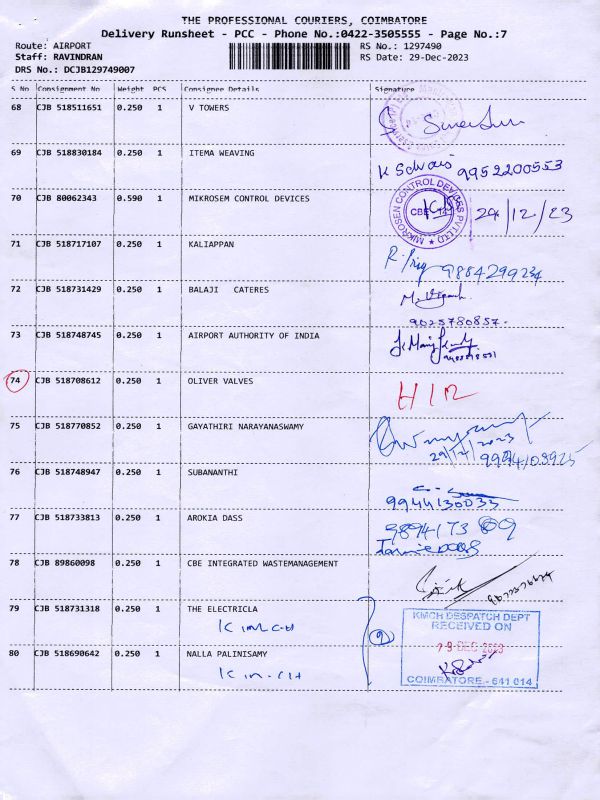 THE PROFESSIONAL COURIERS, COIMBATORE
Delivery Runsheet - PCC - Phone No.:0422-3505555 - Page No.:7
Route: AIRPORT RS No.: 1297490
Staff: RAVINDRAN RS Date: 29-Dec-2023
DRS No.: DCJB129749007
S No Consignment No Weight PCS Consignee Details Signature
68 CJB 518511651 0.250 1 V TOWERS
69 CJB 518830184 0.250 1 ITEMA WEAVING
9952200553
70 CJB 80062343 0.590 1 MIKROSEM CONTROL DEVICES
MIKROSEN CONTROL DEVICES PVT LTD
CBE - 14
29/12/23
71 CJB 518717107 0.250 1 KALIAPPAN
9884299234
72 CJB 518731429 0.250 1 BALAJI CATERES
9025780857
73 CJB 518748745 0.250 1 AIRPORT AUTHORITY OF INDIA
74 CJB 518708612 0.250 1 OLIVER VALVES
75 CJB 518770852 0.250 1 GAYATHIRI NARAYANASWAMY
29/12/2023
76 CJB 518748947 0.250 1 SUBANANTHI
9944130033
77 CJB 518733813 0.250 1 AROKIA DASS
78 CJB 89860098 0.250 1 CBE INTEGRATED WASTEMANAGEMENT
79 CJB 518731318 0.250 1 THE ELECTRICLA
KMCH DESPATCH DEPT
RECEIVED ON
29 DEC 2023
80 CJB 518690642 0.250 1 NALLA PALINISAMY
COIMBATORE - 641 014